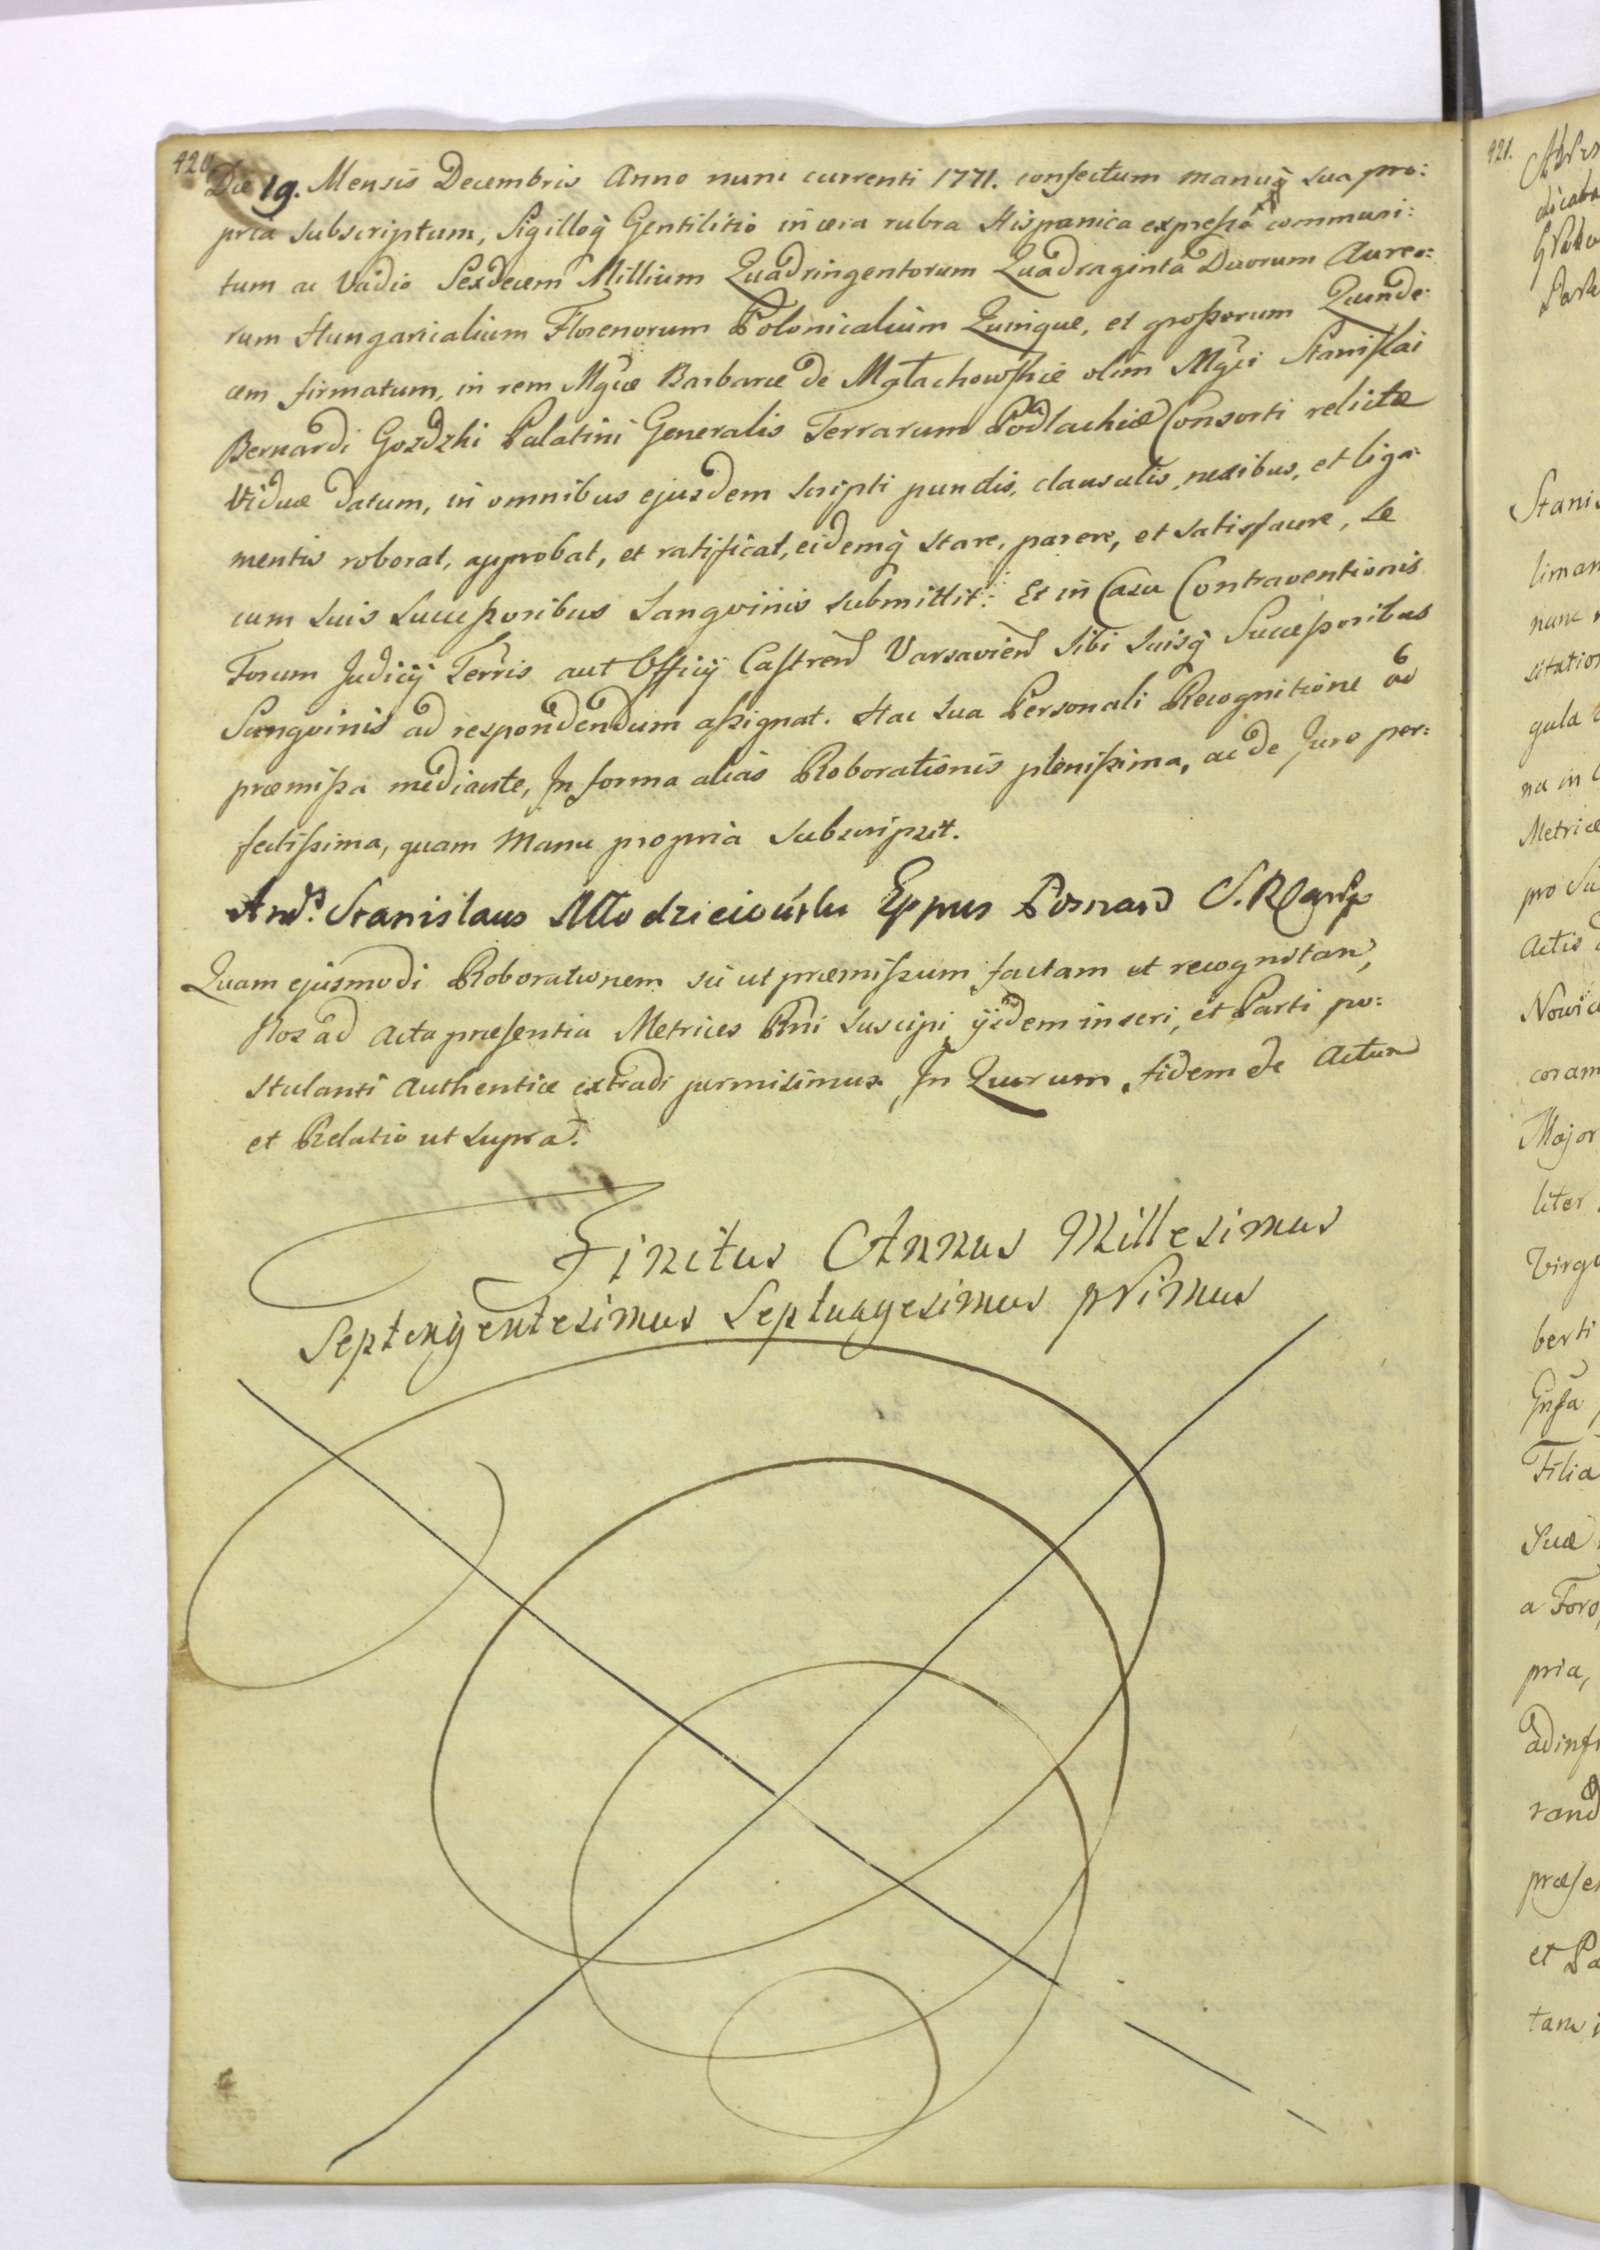 420.
Die 19. Mensis Decembris Anno nunc currenti 1771. confectum manuq̃ sua pro:
pria subscriptum, Sigilloq̃ Gentilitio in cera rubra Hispanica expresso communi:
tum ac Vadio Sexdecem Millium Quadringentorum Quadraginta Duorum Aureo:
rum Hungaricalium Florenorum Polonicalium Quinque, et grossorum Quinde:
cem firmatum, in rem Mgcæ Barbaræ de Małachowskie olim Mgci Stanislai
Bernardi Gozdzki Palatini Generalis Terrarum Podlachiæ Consorti relictæ
Viduæ datum, in omnibus ejusdem scripti punctis, clausulis, nexibus, et liga:
mentis roborat, approbat, et ratificat, eidemq̃ stare, parere, et satisfacere, se
cum suis Successoribus Sangvinis submittit: Et in Casu Contraventionis
Forum Judicij Terris aut Officij Castren Varsavien sibi suisq̃ Successoribus
Sangvinis ad respondendum assignat. Hac sua Personali Recognitione ad
præmissa mediante, In forma alias Roborationis plenissima, ac de Jure per:
fectissima, quam Manu propria subscripsit.
And: Stanislaus Młodzieiowski Eppus Posnan S. R
Quam ejusmodi Roborationem sic ut præmissum factam et recognitan,
Nos ad Acta præsentia Metrices Rni suscipi ijsdem inseri, et Parti po:
stulanti Authenticæ extradi permisimus. In Quorum fidem de Actun
et Relatio ut supra.
Finitus Annus Millesimus
Septengentesimus Septuagesimus primus
421.
Stanis
liman
nunc
sitation
gula
na in
Metricæ
pro Su
Actis
Nowic
coram
Major
liter
Virgo
berti
Filia
Suæ
a Foro
pria,
ad inf
rand
præse
et Pa
tam i